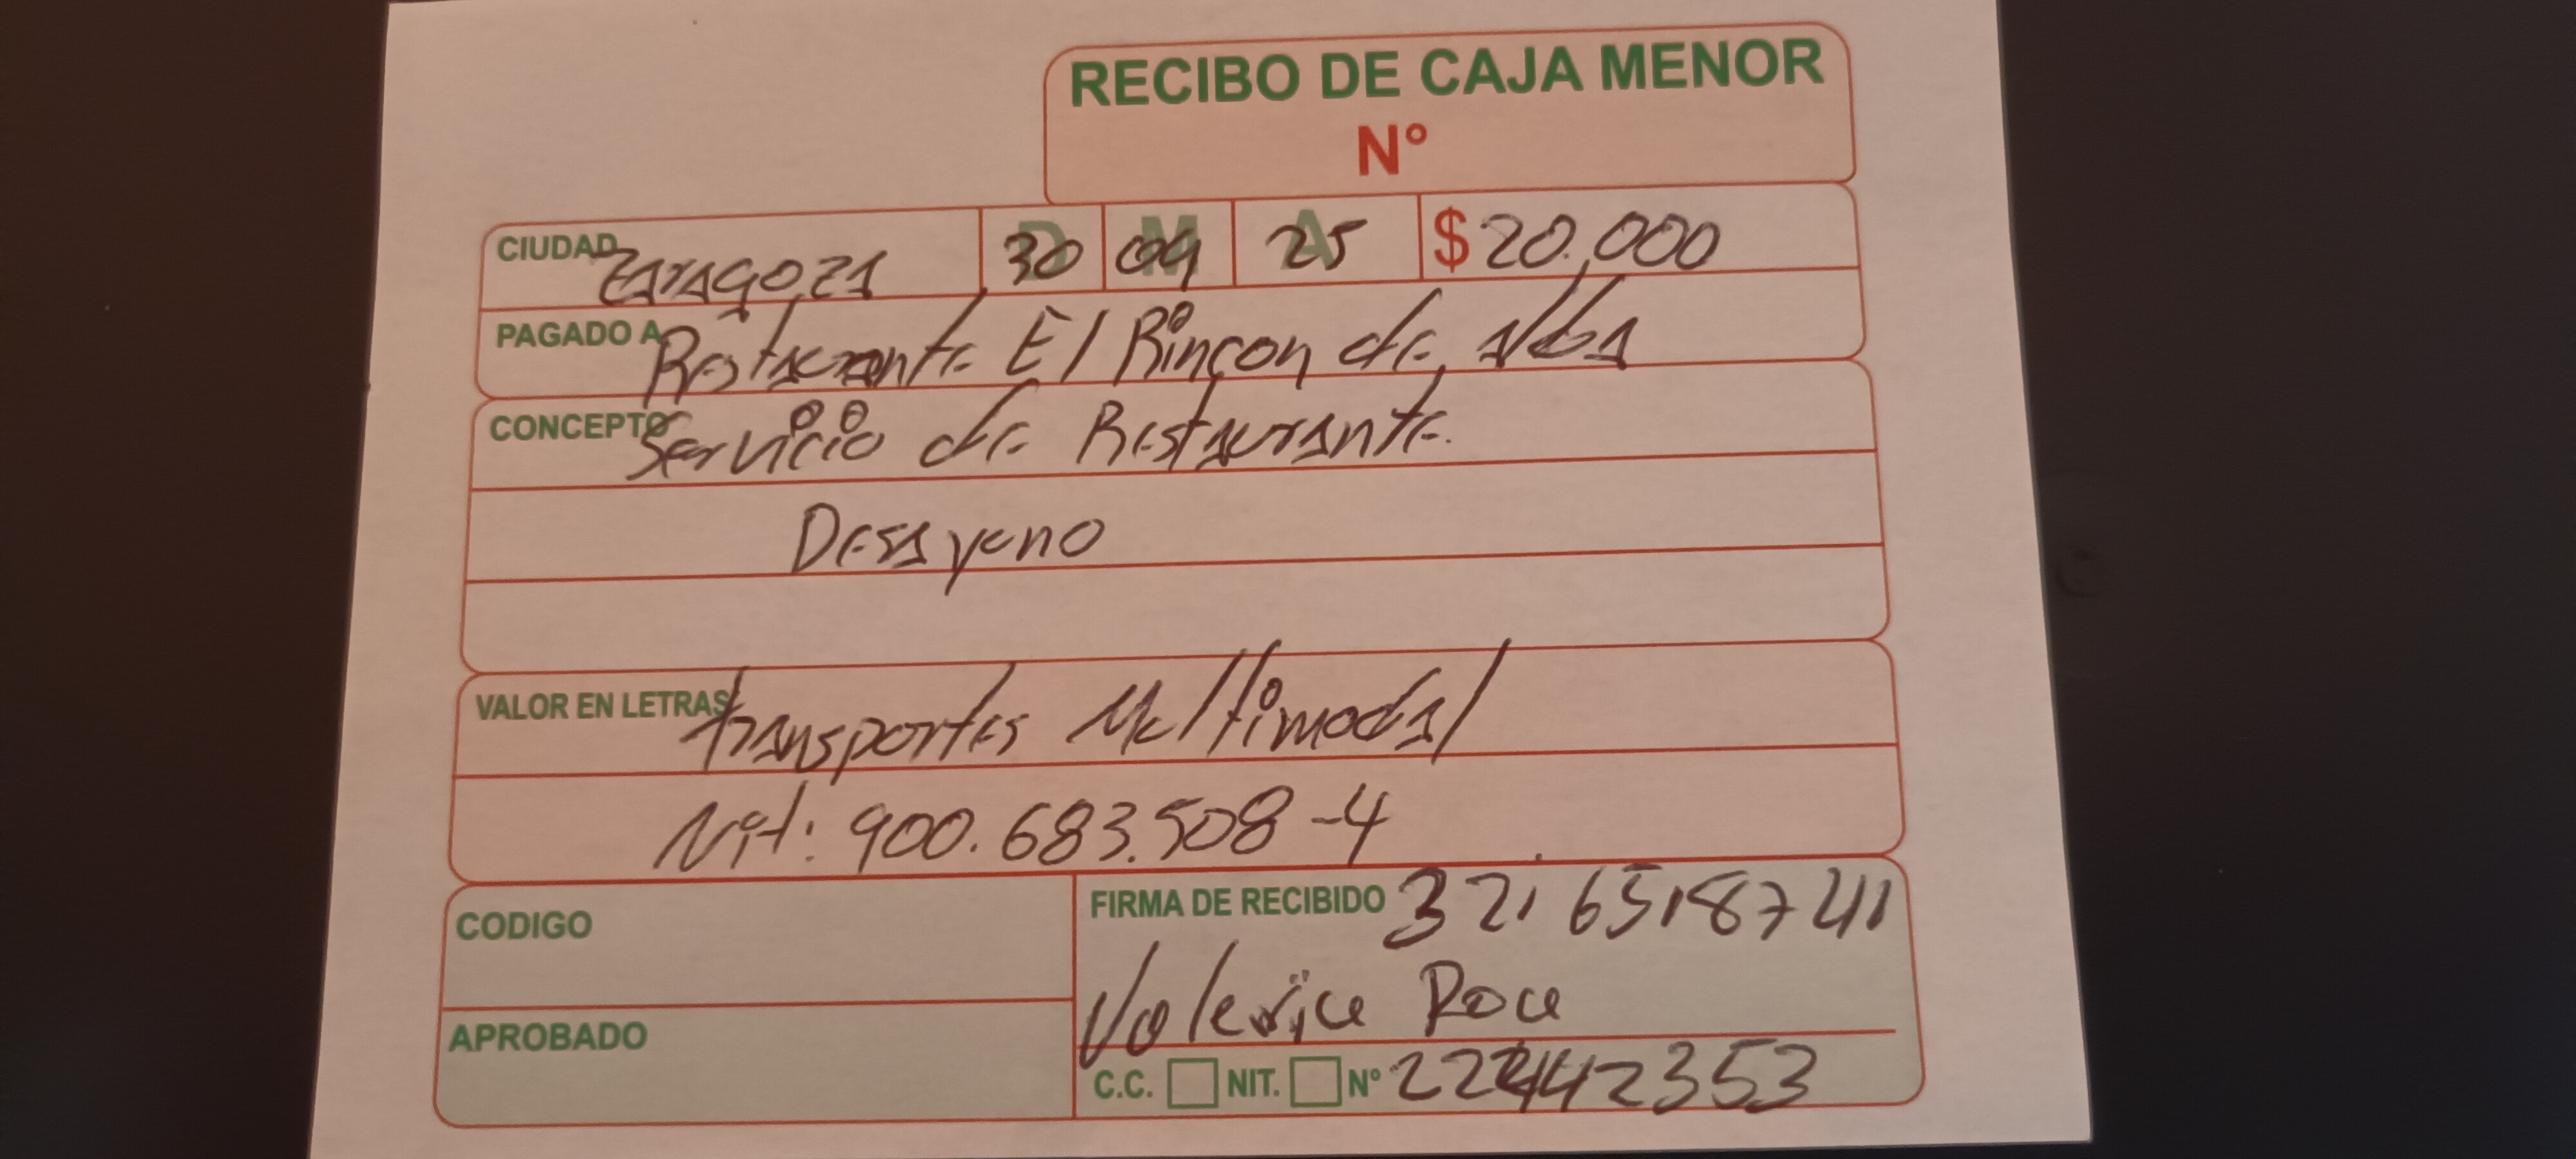 RECIBO DE CAJA MENOR
N°
CIUDAD Zaragoza D 30 M 09 A 25 $ 20.000
PAGADO A Restaurante El Rincon de Alba
CONCEPTO Servicio de Restaurante.
Desayuno
VALOR EN LETRAS Transportes Multimodal
Nit: 900.683.508-4
CODIGO
FIRMA DE RECIBIDO 321 6518741
Valeria Roca
APROBADO
C.C. NIT. N°